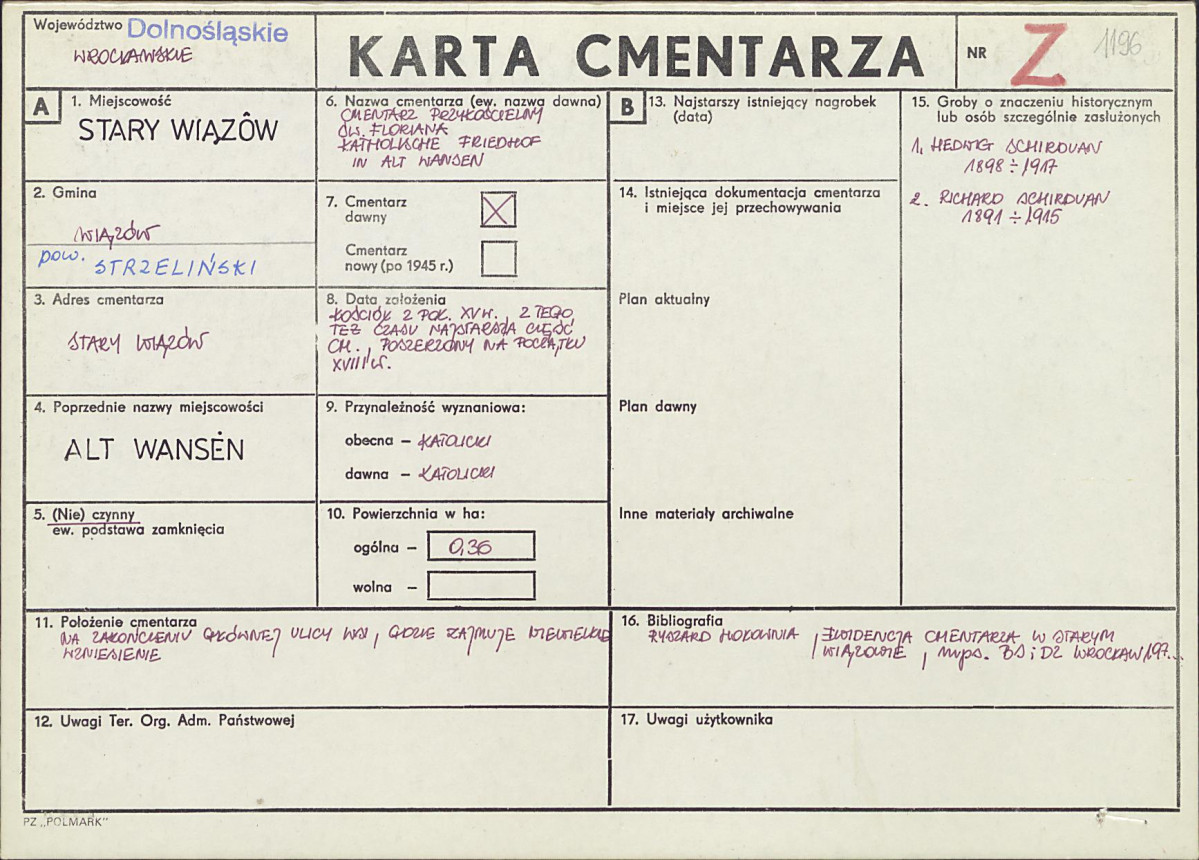 Województwo Dolnośląskie
WROCŁAWSKIE
KARTA CMENTARZA
NR Z 1196
A
1. Miejscowość
STARY WIĄZÓW
2. Gmina
WIĄZÓW
pow. STRZELIŃSKI
3. Adres cmentarza
STARY WIĄZÓW
4. Poprzednie nazwy miejscowości
ALT WANSEN
5. (Nie) czynny
ew. podstawa zamknięcia
6. Nazwa cmentarza (ew. nazwa dawna)
CMENTARZ PRZYKOŚCIELNY
ŚW. FLORIANA
KATHOLISCHE FRIEDHOF
IN ALT WANSEN
7. Cmentarz
dawny
Cmentarz
nowy (po 1945 r.)
8. Data założenia
KOŚCIÓŁ Z POŁ. XV W., Z TEGO
TEŻ CZASU NAJSTARSZA CZĘŚĆ
CM., POSZERZONY NA POCZĄTKU
XVIII W.
9. Przynależność wyznaniowa:
obecna – KATOLICKI
dawna – KATOLICKI
10. Powierzchnia w ha:
ogólna – 0,36
wolna –
B
13. Najstarszy istniejący nagrobek
(data)
14. Istniejąca dokumentacja cmentarza
i miejsce jej przechowywania
Plan aktualny
Plan dawny
Inne materiały archiwalne
15. Groby o znaczeniu historycznym
lub osób szczególnie zasłużonych
1. HEDWIG SCHIRDUAN
1898 ÷ 1917
2. RICHARD SCHIRDUAN
1891 ÷ 1915
11. Położenie cmentarza
NA ZAKOŃCZENIU GŁÓWNEJ ULICY WSI, GDZIE ZAJMUJE NIEWIELKIE
WZNIESIENIE
12. Uwagi Ter. Org. Adm. Państwowej
16. Bibliografia
RYSZARD , EWIDENCJA CMENTARZA W STARYM
WIĄZOWIE, mps. BSiDZ WROCŁAW 197...
17. Uwagi użytkownika
PZ „POLMARK"